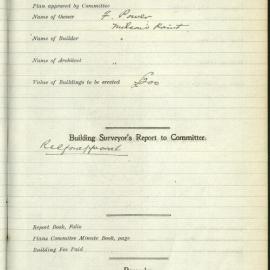 Plan approved by Committee
Name of Owner F. Power
Milson's Point
Name of Builder "
Name of Architect "
Value of Buildings to be erected £
Building Surveyor's Report to Committee.
Report Book, Folio
Plans Committee Minute Book, page
Building Fee Paid